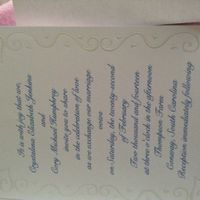 It is with joy that we,
Crystalina Elizabeth Jenkins
and
Cory Michael Humphrey
invite you to share
in the celebration of love
as we exchange our marriage
vows
on Saturday, the twenty-second
of February
Two thousand and fourteen
at three o'clock in the afternoon
Thompson Farm
Conway, South Carolina
Reception immediately following